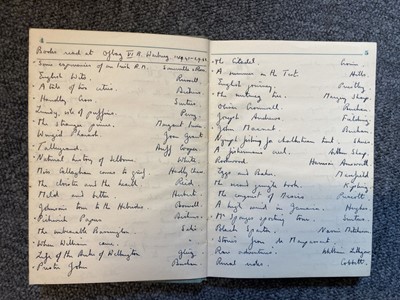 4
Books read at Oflag VI B Warburg
Some experiences of an Irish R.M. Somerville & Ross
English Wits. Russell.
A tale of two cities. Dickens
Handley Cross. Surtees
Lundy, isle of puffins. Perry.
The strange prince. Margaret
Winged Pharaoh. Joan Grant.
Talleyrand. Duff Cooper.
Natural history of Selborne. White.
Miss Callaghan comes to grief. Hadley Chase
The cloister and the hearth. Reid
Mild and bitter. Herbert
Johnson's tour to the Hebrides. Boswell.
Pickwick Papers Dickens
The unbearable Bassington Saki
When William came. "
Life of the Duke of Wellington
Prester John Buchan
5
The Citadel. Cronin.
A summer on the Test. Hills.
English journey. Priestley
The nutmeg tree. Margery Sharp.
Oliver Cromwell. Buchan.
Joseph Andrews Fielding
John Macnab. Buchan.
Nymph fishing for chalkstream trout. Skues.
A fisherman's creel. Arthur Sharp.
Rookwood. Harrison Ainsworth
Eggs and Baker. Masefield
The second jungle book. Kipling
The conquest of Mexico Prescott
A high wind in Jamaica Hughes
Mr Sponge's sporting tour. Surtees.
Black Sparta. Naomi Mitchison
Stories from de Maupassant.
Rare adventures. William Lithgow
Rural rides. Cobbett.